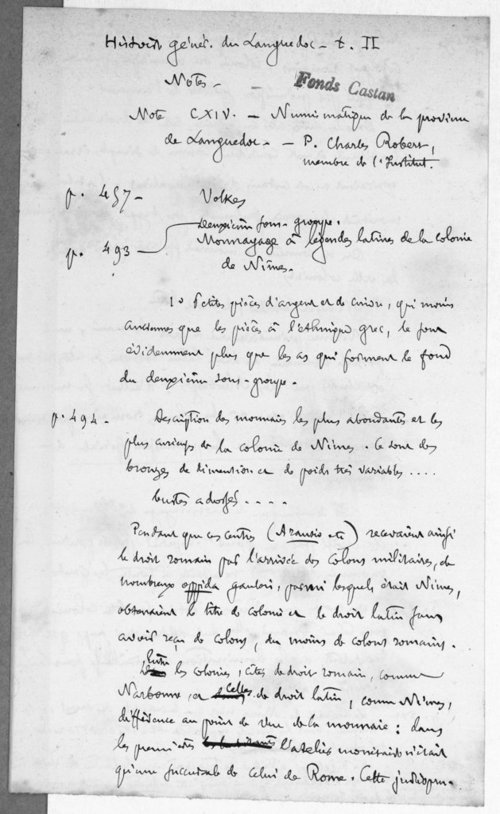 Histoire génér. du Languedoc - t. II
Notes -
Fonds Castan
Note CXIV. - Numismatique de la province
de Languedoc. - P. Charles Robert,
membre de l'Institut.
p. 457 - Volkes
Deuxième sous-groupe.
p. 493 - Monnayage à légendes latines de la colonie
de Nîmes.
1o Petites pièces d'argent et de cuivre, qui moins
anciennes que les pièces à l'ethnique grec, le sont
évidemment plus que les as qui forment le fond
du deuxième sous-groupe.
p. 494. Description des monnaies les plus abondantes et les
plus curieuses de la colonie de Nîmes. Ce sont des
bronzes de dimension et de poids très variables ....
bustes adossés ....
Pendant que ces centres (Arausio etc) recevaient ainsi
le droit romain par l'arrivée des colons militaires, de
nombreux oppida gaulois, parmi lesquels était Nîmes,
obtenaient le titre de colonie et le droit latin sans
avoir reçu de colons, du moins de colons romains.
Entre les colonies, cités de droit romain, comme
Narbonne, et celles de droit latin, comme Nîmes,
différence au point de vue de la monnaie : dans
les premières l'atelier monétaire n'était
qu'une succursale de celui de Rome. Cette jurispru-